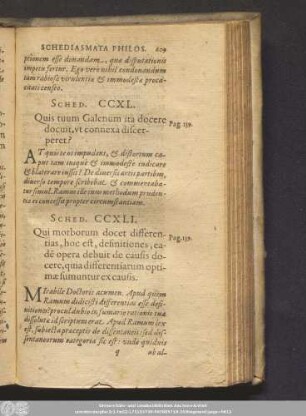 SCHEDIASMATA PHILOS. 609
ptionem esse donandam.., qua disputationis
impetu fertur. Ego vero nihil condonandum
tam rabiosæ virulentia & immodesta proca-
citati censeo.
SCHED. CCXL.
Quis tuum Galenum ita docere
docuit, vt connexa discer-
peret?
Pag. 139.
AT quis te os impudens, & distortum ca-
put tam inique & immodeste iudicare
& blaterare iussit? De diversis artis partibus,
diverso tempore scribebat. &
Ramus
circumstantiam.
SCHED. CCXLI.
Qui morborum docet differen-
tias, hoc est, definitiones, ea-
dē opera debuit de causis do-
cere, quia differentiarum opti-
mæ sumuntur ex causis.
Pag. 139.
MIrabile Doctoris acumen. Apud quem
Ramum didicisti differentias esse defi-
nitiones? procul dubio in summario rationis tuæ
dissolutæ id scriptum erat. Apud Ramum lex
est, subiecta præceptis de dissentaneis: sed dis-
sentaneorum categoria sic est: unde quidvis
q ab al-